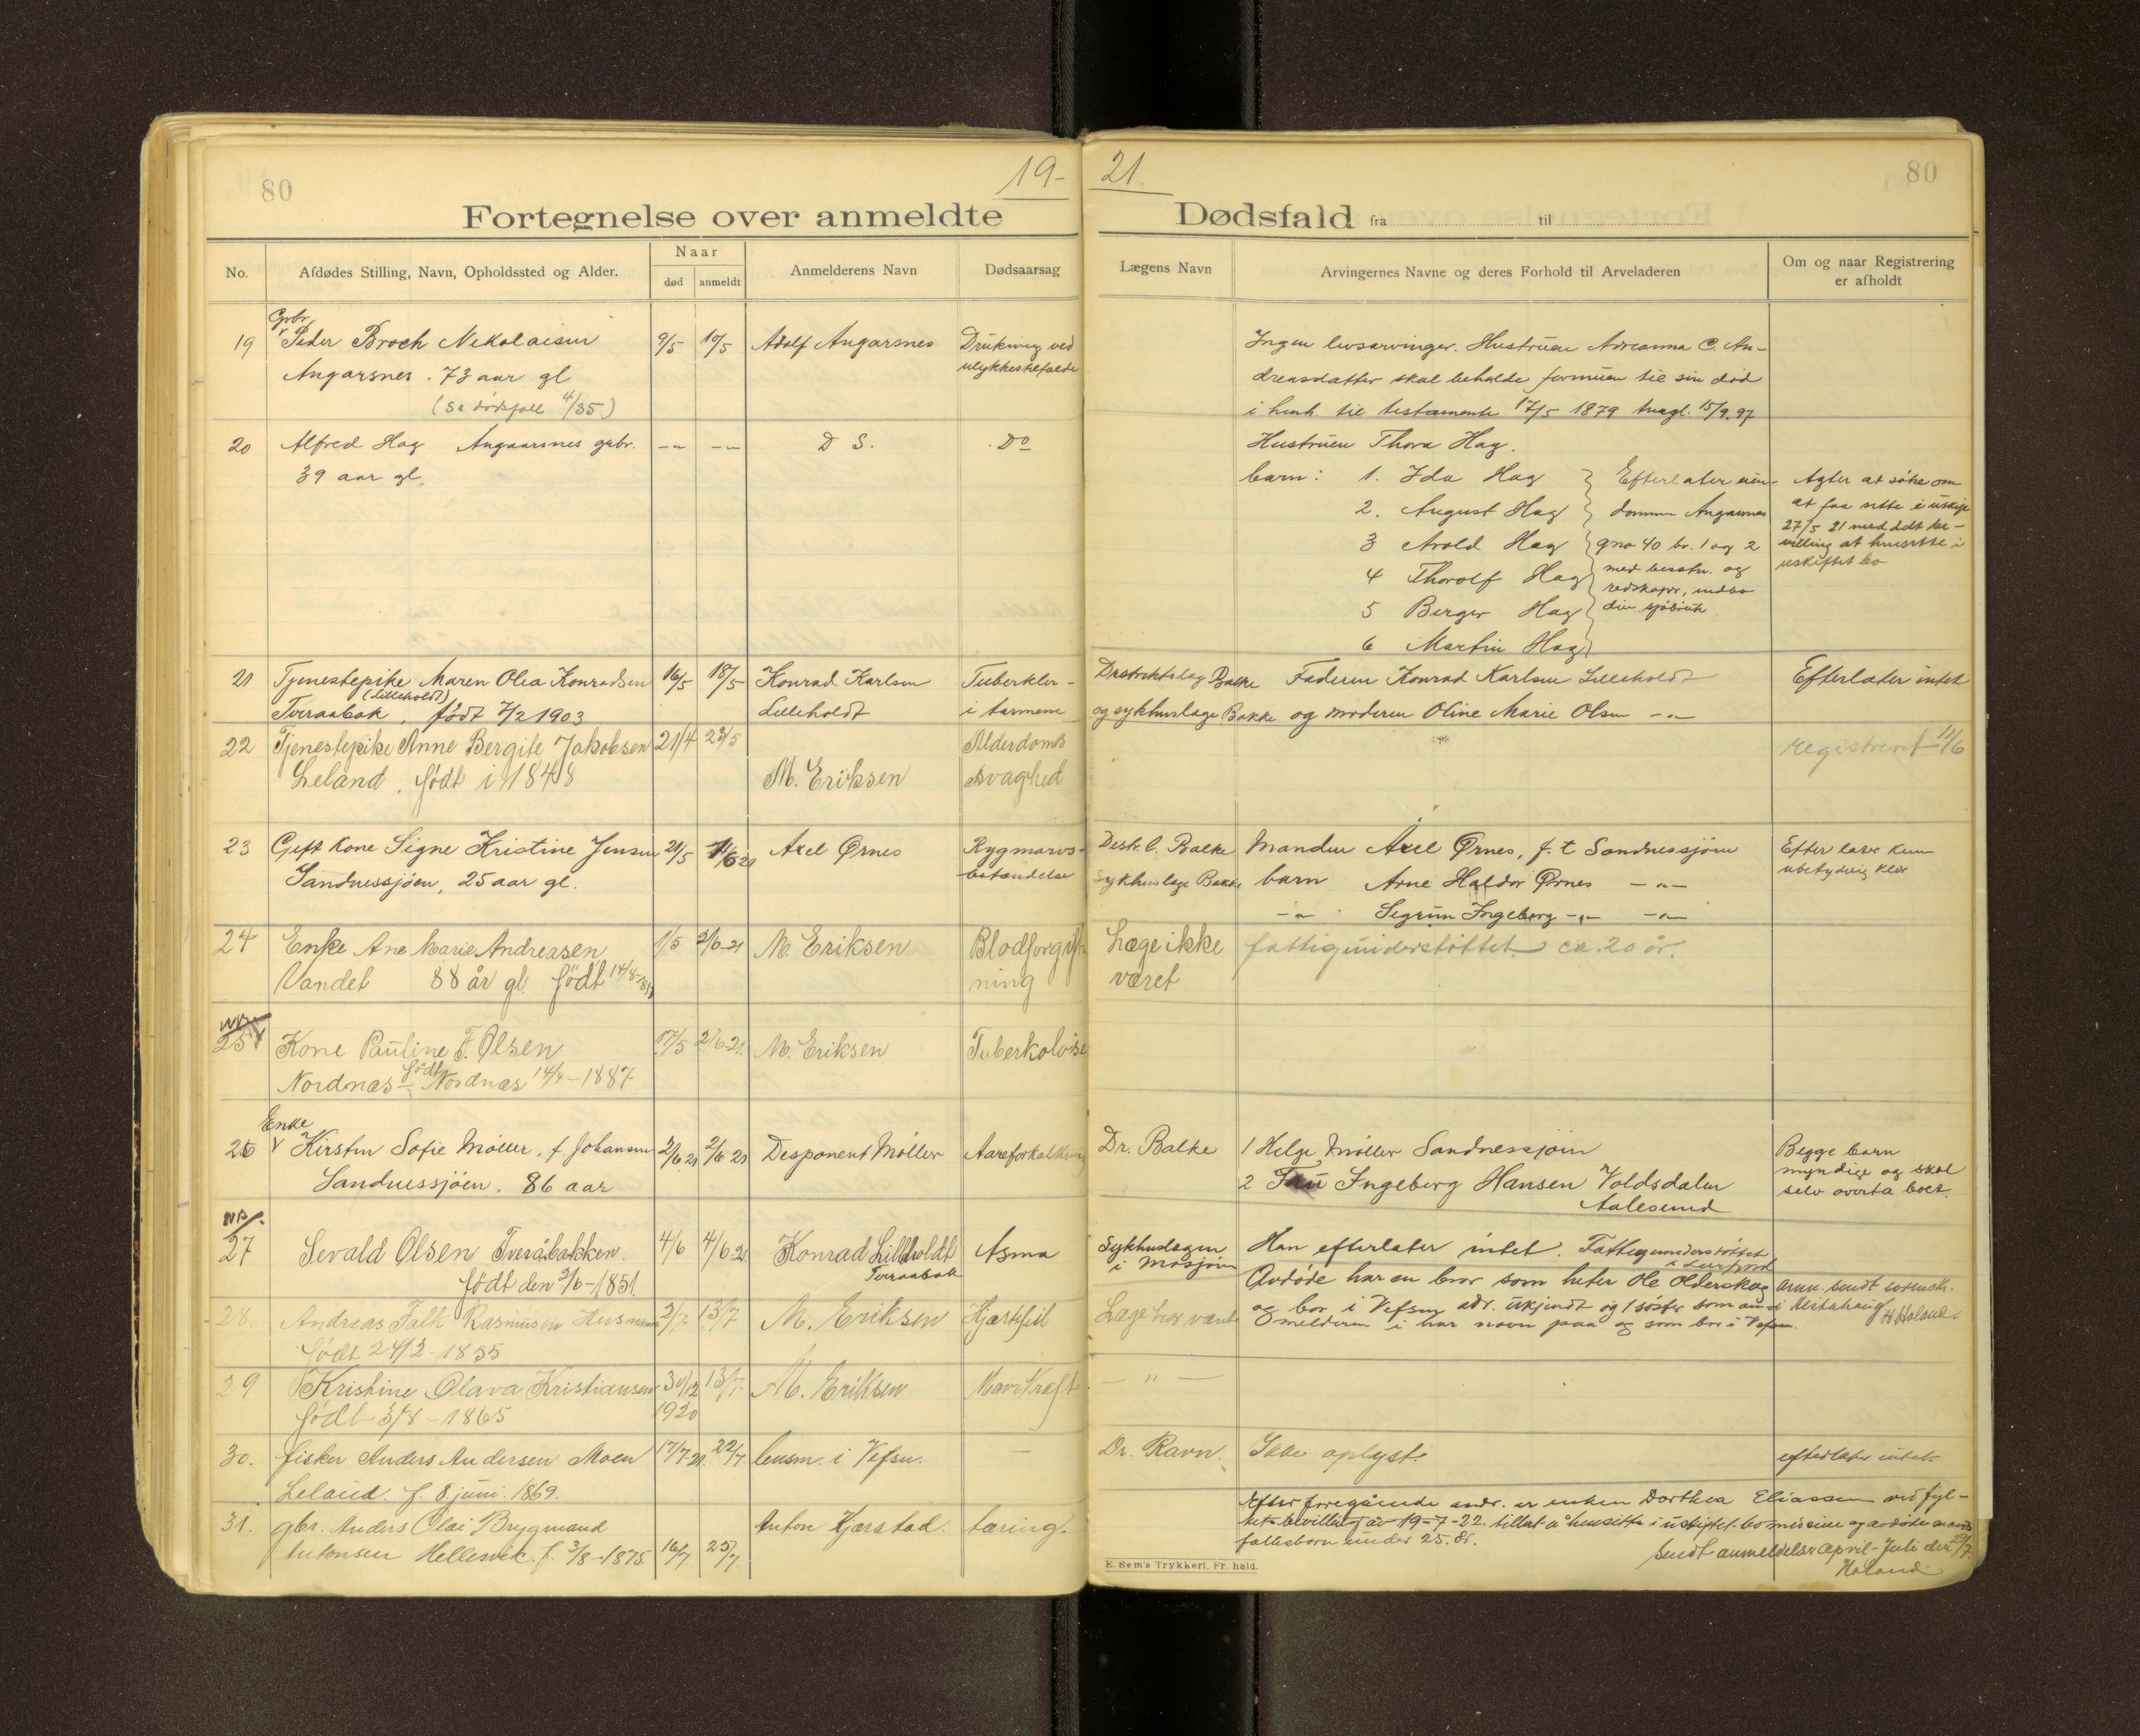 80
19-
21.
80
Fortegnelse over anmeldte
Dødsfald fra til
No.
Afdødes Stilling, Navn, Opholdssted og Alder.
Naar
død
anmeldt
Anmelderens Navn
Dødsaarsag
Lægens Navn
Arvingernes Navne og deres Forhold til Arveladeren
Om og naar Registrering
er afholdt
Gbr.
19 Peder Broch Nikolaisen 9/5 10/5 Adolf Angarsnes Drukning ved
Angarsnes. 73 aar gl ulykkestilfælde
(se dødsfall 4/35)
Ingen livsarvinger. Hustruen Adreanna C. An-
dreasdatter skal beholde formuen til sin død
i henh. til testamente 17/5 1879 tingl. 15/9.97
20 Alfred Hag Angaarsnes gbr. -"- -"- D S. Do
39 aar gl.
Hustruen Thora Hag.
barn: 1. Ida Hag
2. August Hag
3 Arold Hag
4 Thorolf Hag
5 Berger Hag
6 Martin Hag
Efterlater eien-
dommen Angarsnes
gno 40 br. 1 og 2
med besætn. og
redskaper, indbo
Agter at søke om
at faa sitte i uskifte
27/5 21 meddelt be-
villing at hensitte i
uskiftet bo
21 Tjenestepike Maren Olea Konradsen 16/5 18/5 Konrad Karlsen Tuberkler-
(Lilleholdt)
Tveraabak, født 7/2 1903 Lilleholdt i tarmene
Distriktslæg Balke Faderen Konrad Karlsen Lilleholdt Efterlater intet
og sykhuslæge Bakke og moderen Oline Marie Olsen -"-
22 Tjenestepike Anne Bergite Jakobsen 21/4 23/5 Alderdoms
Leland, født i 1848 M. Eriksen svaghed
registreret 11/6
23 Gift kone Signe Kristine Jensen 21/5 1/6 21 Axel Ørnes Rygmarvs-
Sandnessjøen, 25 aar gl. betændelse
Distr.l. Balke Manden Axel Ørnes, f. t Sandnessjøen
Sykhuslæge Bakke barn Arne Haldor Ørnes -"-
-"- Sigrun Ingeborg -"- -"-
Efterlater kun
ubetydelig klær
24 Enke Ane Marie Andreasen 1/5 2/6-21 M. Eriksen Blodforgift-
Vandet 88 år gl. født 14/8- ning
Læge ikke fattigunderstøttet ca. 20 år.
været
NB.
25 Kone Pauline F. Olsen 17/5 2/6-21. M. Eriksen Tuberkolose
Nordnæs født Nordnæs 14/4-1887
Enke
26 Kirsten Sofie Møller, f. Johansen 2/6 21 2/6 21 Disponent Møller Aareforkalkning
Sandnessjøen. 86 aar
Dr. Balke 1 Helge Møller Sandnessjøen
2 Fru Ingeborg Hansen Voldsdalen
Aalesund
Begge barn
myndige og skal
selv overta boet.
NB.
27 Sevald Olsen Tveråbakken. 4/6 4/6-21. Konrad Lilleholdt Asma
Tveraabak
født den 3/6-1851.
Sykhuslægen Han efterlater intet. Fattigunderstøttet
i Mosjøen i Leirfjord
Avdøde har en bror som heter Ole Olderskog
og bor i Vefsn adr. ukjendt og 1 søster som an-
melderen i har navn paa og som bor i Vefsn.
anm. sendt sorensk.
i Alstahaug
H. Haland.
28. Andreas Falk Rasmusen Husmann 2/7 13/7 M. Eriksen Hjertefeil
født 24/2-1855
Læge har været
29 Kristine Olava Kristiansen 30/12 13/7. M. Eriksen Mavekræft
født 3/8-1865 1920
- " -
30. fisker Anders Andersen Moen 17/7-21. 22/7. lensm. i Vefsn. -
Leland. f. 8 juni 1869.
Dr. Ravn. Ikke oplyst. efterlater intet.
31. gbr. Anders Olai Brygmand Anton Kjærstad. tæring.
Antonsen Hellesvik. f. 3/8-1875 16/7 25/7.
Efter foregående andr. er enken Dorthea Eliassen ved fyl-
kets bevilling av 19-7-22. tillat å hensitte i uskiftet bo med sine og avdøde mands
fællesbarn under 25. år.
Sendt anmeldelser April-Juli den 29/7.
Haland.
E. Sem's Trykkeri, Fr.hald.